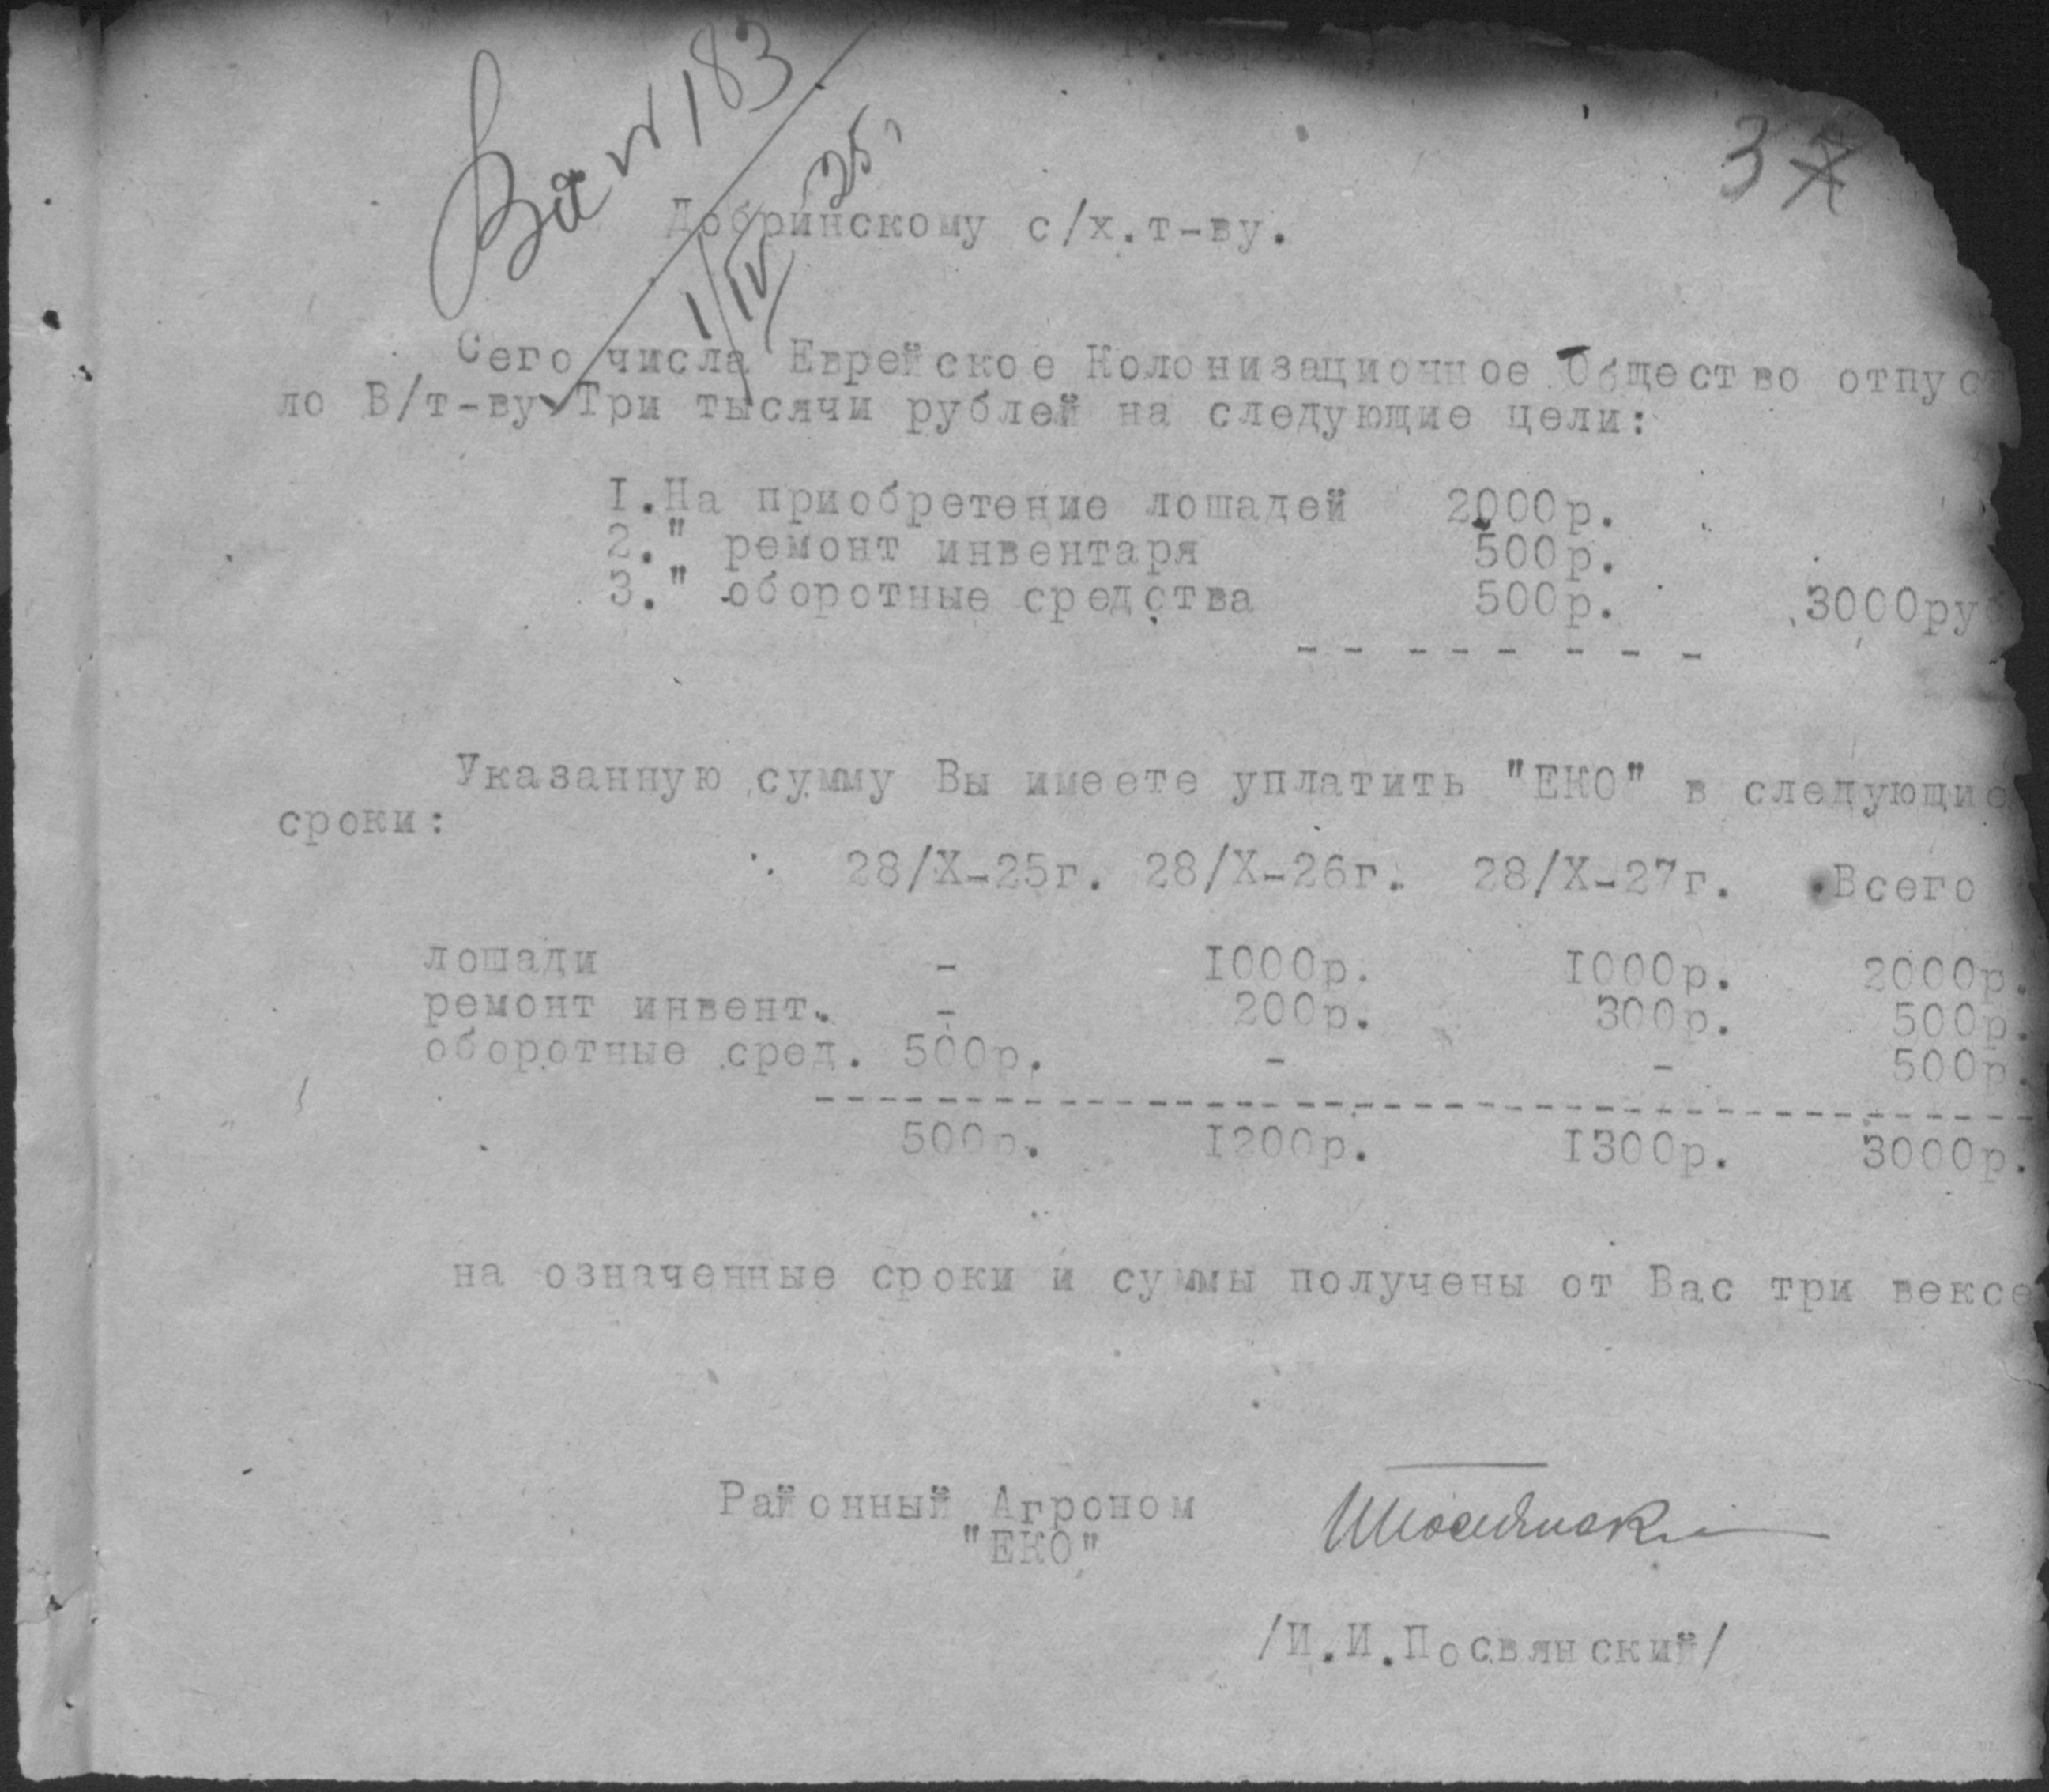 183
37
1/IV 25.
Добринскому с/х.т-ву.
Сего числа Еврейское Колонизационное Общество отпуст
ло В/т-ву Три тысячи рублей на следующие цели:
I.На приобретение лошадей 2000р.
2." ремонт инвентаря 500р.
3." оборотные средства 500р. 3000руб
- - - - - - - -
Указанную сумму Вы имеете уплатить "ЕКО" в следующие
сроки:
28/X-25г. 28/X-26г. 28/X-27г. Всего
лошади - I000р. I000р. 2000р.
ремонт инвент. - 200р. 300р. 500р.
оборотные сред. 500р. - - 500р.
500р. I200р. I300р. 3000р.
на означенные сроки и суммы получены от Вас три вексе
Районный Агроном
"ЕКО"
/И.И.Посвянский/